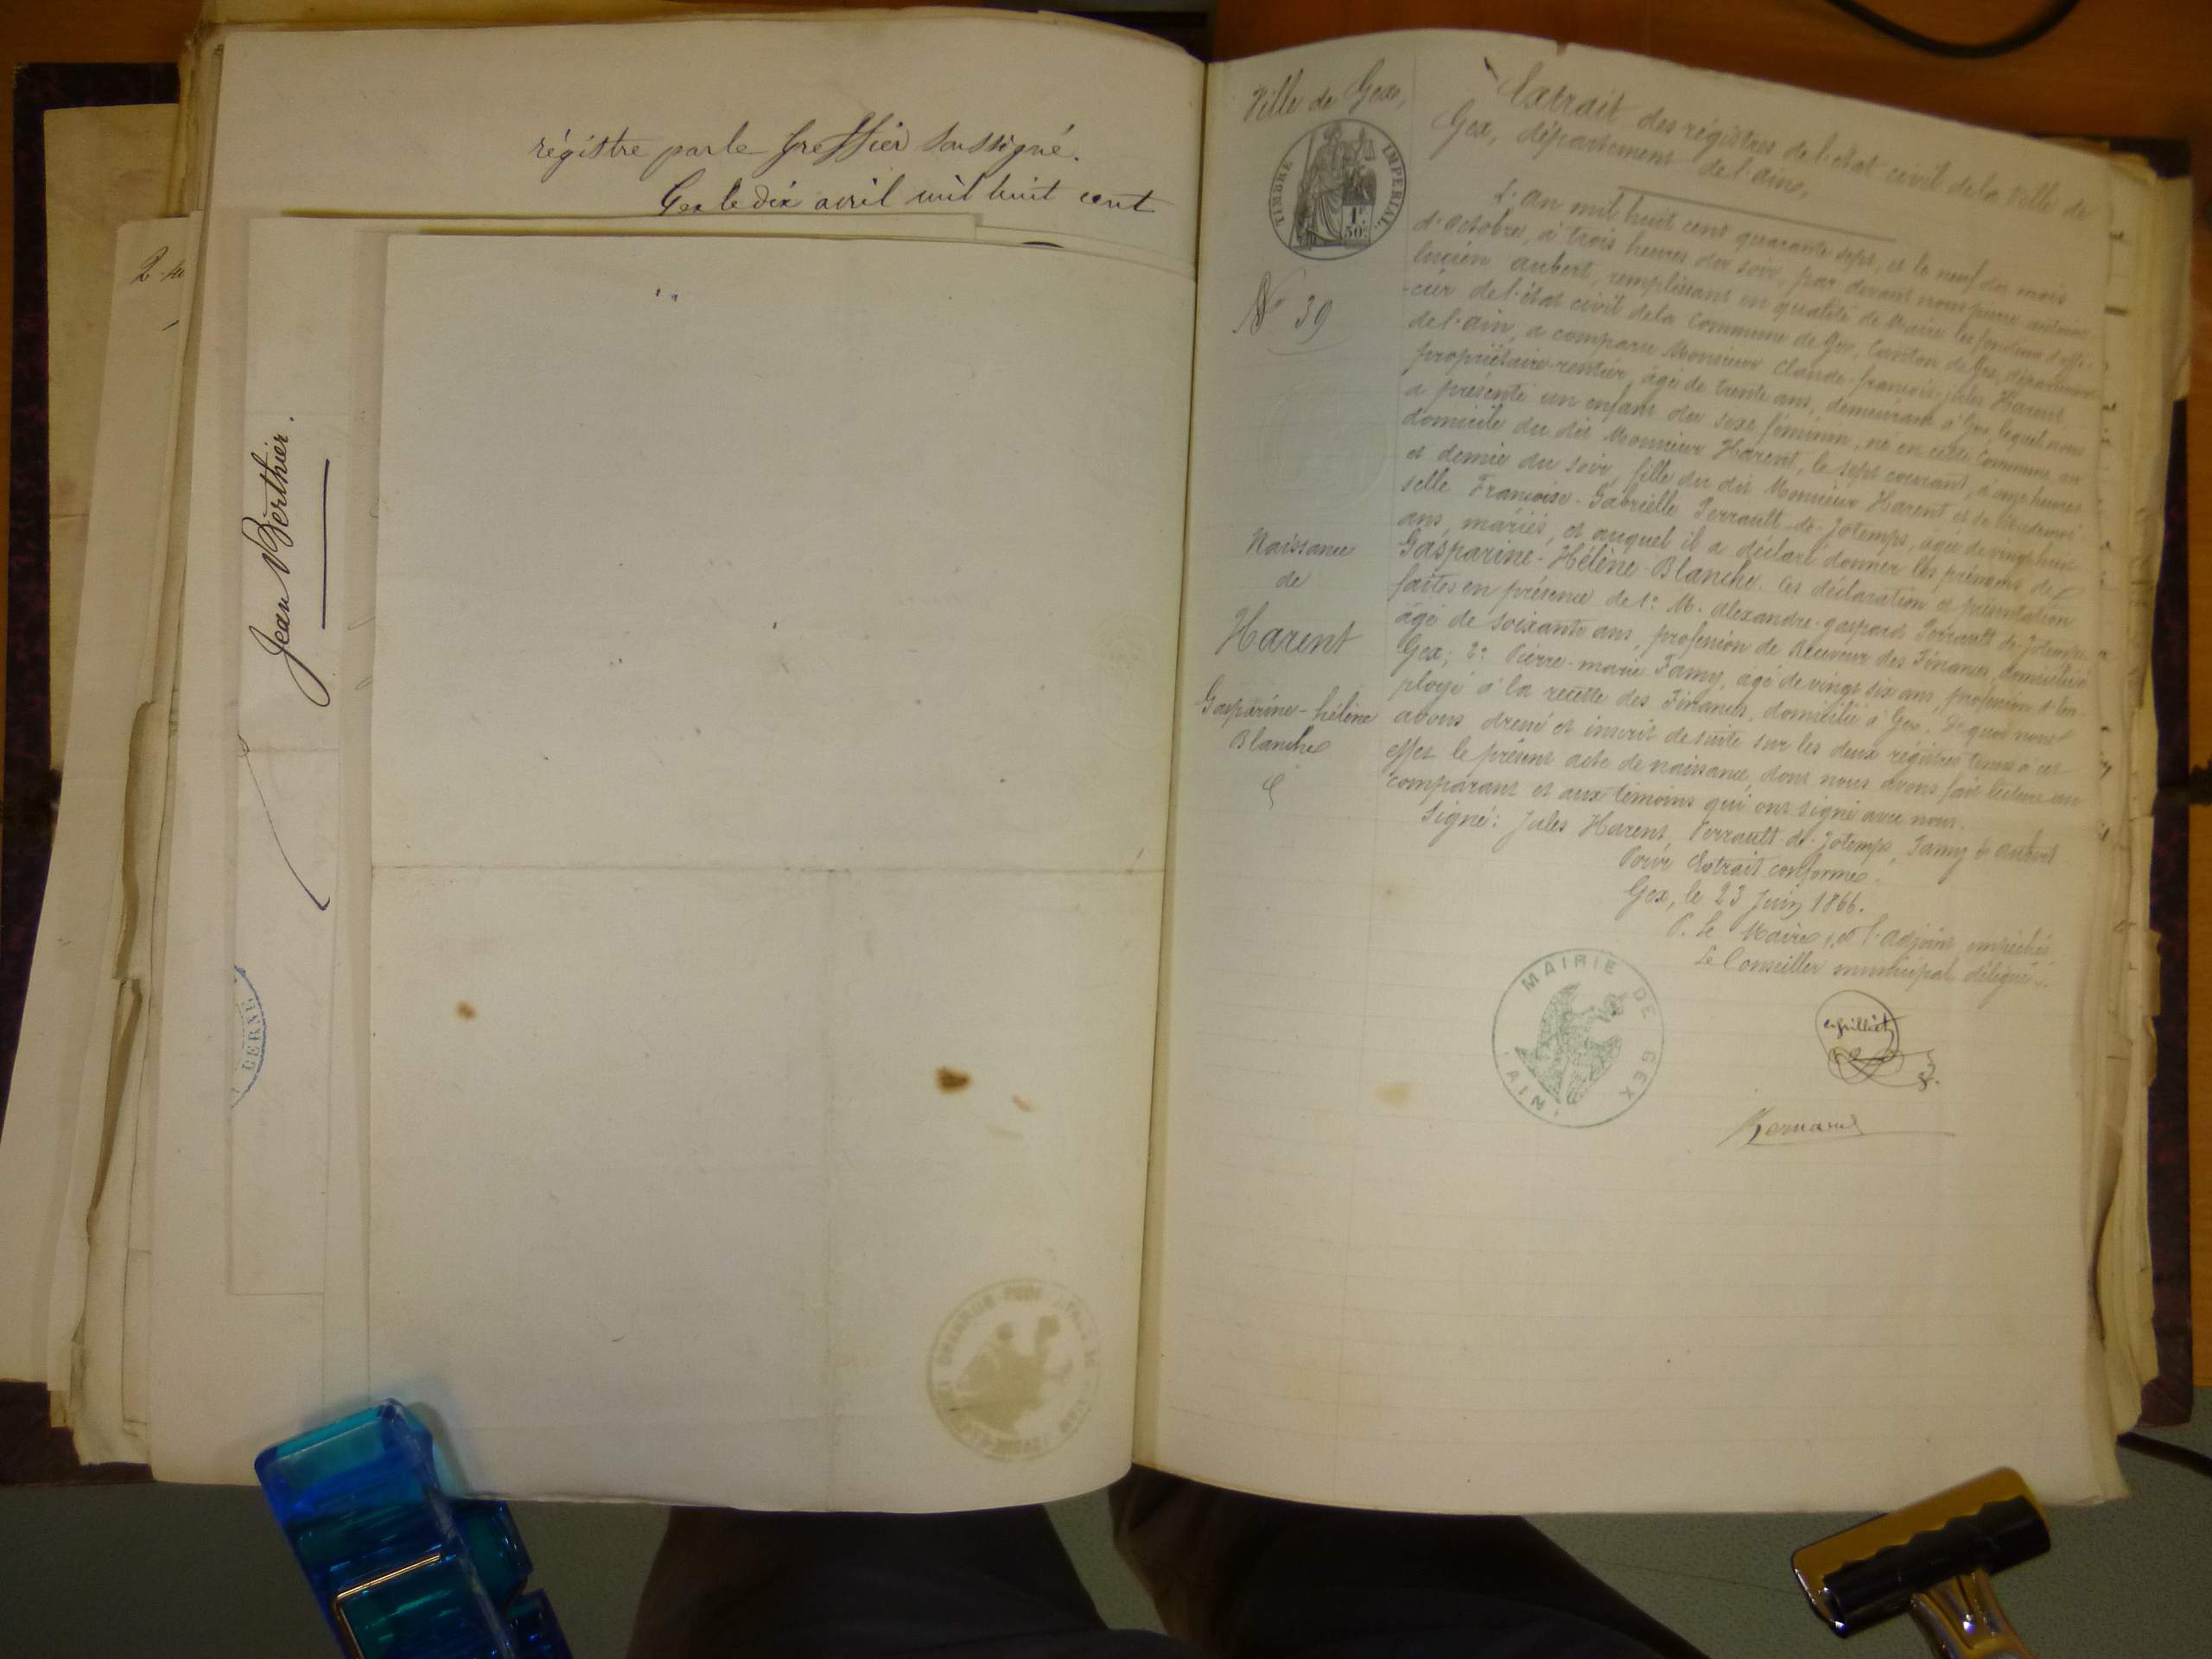 régistre par le Greffier Soussigné.
Gex le dix avril mil huit cent
2
Jean Berthier.
Ville de Gex,
TIMBRE IMPERIAL
1F
50c
N° 39
Naissance
de
Harent
Gasparine-hélène
Blanche
Extrait des régistres de l'état civil de la Ville de
Gex, département de l'ain,
L'An mil huit cent quarante sept, et le neuf du mois
d'octobre, à trois heures du soir, par devant nous pierre antoine
lucien aubert, remplissant en qualité de Maire les fonctions d'offi-
-cier de l'état civil de la commune de Gex, Canton de Gex, département
de l'ain, a comparu Monsieur Claude-françois-jules Harent
propriétaire-rentier, âgé de trente ans, demeurant à Gex, lequel nous
a présenté un enfant du sexe féminin, né en cette Commune, au
domicile du dit Monsieur Harent, le sept courant, à onze heures
et demie du soir, fille du dit Monsieur Harent et de Mademoi-
selle Françoise-Gabrielle Perrault-de-Jotemps, agée de vingt huit
ans, mariés, et auquel il a déclaré donner les prénoms de
Gasparine-Hélène-Blanche. Ces déclaration et présentation
faites en présence de 1° M. alexandre-gaspard Perrault-de-Jotemps
âgé de soixante ans, profession de Receveur des Finances, domicilié
Gex; 2° Pierre-marie Famy, âgé de vingt six ans, profession d'Em-
ployé à la recette des Finances, domicilié à Gex. De quoi nous
avons dressé et inscrit de suite sur les deux régistres tenus à cet
effet le présent acte de naissance, dont nous avons fait lecture au
comparant et aux témoins qui ont signé avec nous.
Signé: Jules Harent, Perrault-de-Jotemps, Famy & aubert
Pour Extrait conforme.
Gex, le 23 Juin 1866.
P. Le Maire, et l'adjoint empêchés
Le Conseiller municipal délégué
MAIRIE DE GEX
(AIN)